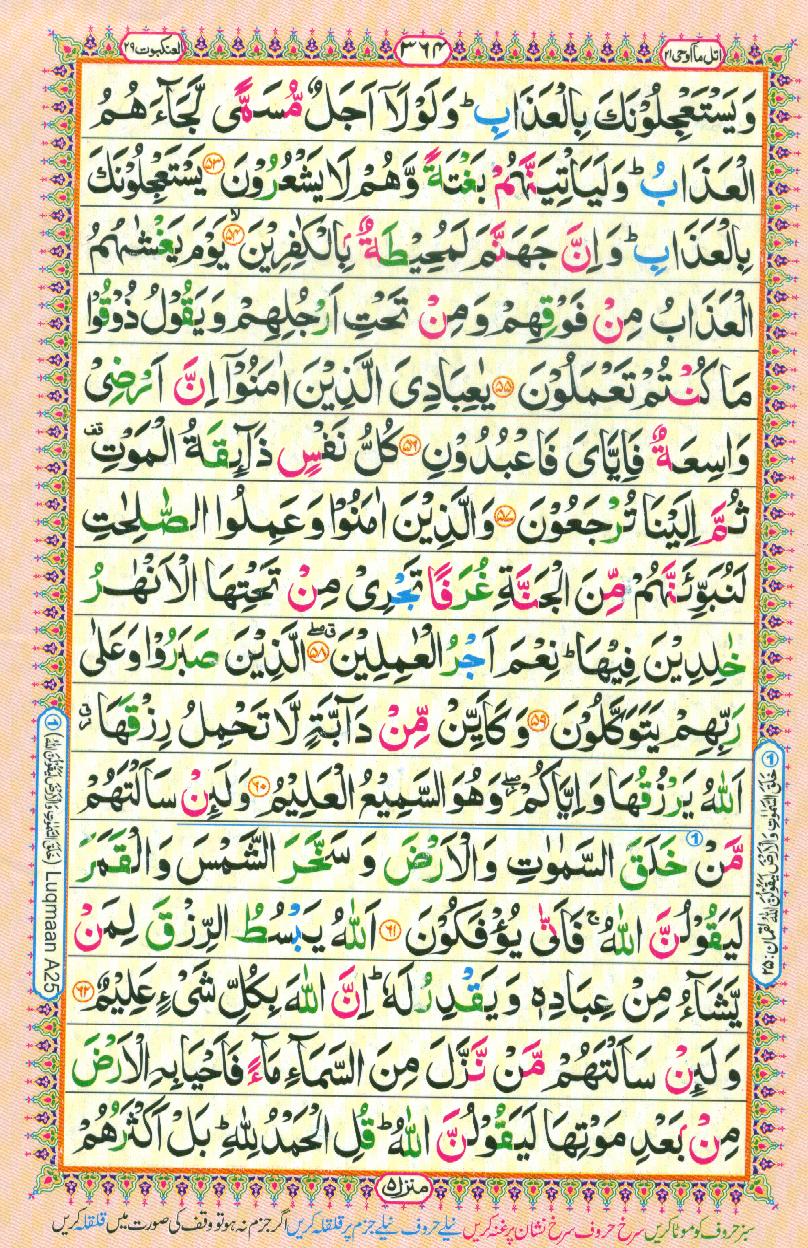 اتل ما اوحی ۲۱
۳۶۴
العنکبوت ۲۹
وَيَسْتَعْجِلُوْنَكَ بِالْعَذَابِ ؕ وَلَوْلَاۤ اَجَلٌ مُّسَمًّى لَّجَآءَهُمُ
الْعَذَابُ ؕ وَلَيَاْتِيَنَّهُمْ بَغْتَةً وَّهُمْ لَا يَشْعُرُوْنَ ﴿۵۳﴾ يَسْتَعْجِلُوْنَكَ
بِالْعَذَابِ ؕ وَاِنَّ جَهَنَّمَ لَمُحِيْطَةٌۢ بِالْكٰفِرِيْنَ ۙ﴿۵۴﴾ يَوْمَ يَغْشٰىهُمُ
الْعَذَابُ مِنْ فَوْقِهِمْ وَمِنْ تَحْتِ اَرْجُلِهِمْ وَيَقُوْلُ ذُوْقُوْا
مَا كُنْتُمْ تَعْمَلُوْنَ ﴿۵۵﴾ يٰعِبَادِىَ الَّذِيْنَ اٰمَنُوْۤا اِنَّ اَرْضِىْ
وَاسِعَةٌ فَاِيَّاىَ فَاعْبُدُوْنِ ﴿۵۶﴾ كُلُّ نَفْسٍ ذَآئِقَةُ الْمَوْتِ قف
ثُمَّ اِلَيْنَا تُرْجَعُوْنَ ﴿۵۷﴾ وَالَّذِيْنَ اٰمَنُوْا وَعَمِلُوا الصّٰلِحٰتِ
لَنُبَوِّئَنَّهُمْ مِّنَ الْجَنَّةِ غُرَفًا تَجْرِىْ مِنْ تَحْتِهَا الْاَنْهٰرُ
خٰلِدِيْنَ فِيْهَا ؕ نِعْمَ اَجْرُ الْعٰمِلِيْنَ ﴿۵۸﴾ الَّذِيْنَ صَبَرُوْا وَعَلٰى
رَبِّهِمْ يَتَوَكَّلُوْنَ ﴿۵۹﴾ وَكَاَيِّنْ مِّنْ دَآبَّةٍ لَّا تَحْمِلُ رِزْقَهَا
اَللّٰهُ يَرْزُقُهَا وَاِيَّاكُمْ ۖ وَهُوَ السَّمِيْعُ الْعَلِيْمُ ﴿۶۰﴾ وَلَئِنْ سَاَلْتَهُمْ
مَّنْ خَلَقَ السَّمٰوٰتِ وَالْاَرْضَ وَسَخَّرَ الشَّمْسَ وَالْقَمَرَ
لَيَقُوْلُنَّ اللّٰهُ ۚ فَاَنّٰى يُؤْفَكُوْنَ ﴿۶۱﴾ اَللّٰهُ يَبْسُطُ الرِّزْقَ لِمَنْ
يَّشَآءُ مِنْ عِبَادِهٖ وَيَقْدِرُ لَهٗ ؕ اِنَّ اللّٰهَ بِكُلِّ شَىْءٍ عَلِيْمٌ ﴿۶۲﴾
وَلَئِنْ سَاَلْتَهُمْ مَّنْ نَّزَّلَ مِنَ السَّمَآءِ مَآءً فَاَحْيَا بِهِ الْاَرْضَ
مِنْۢ بَعْدِ مَوْتِهَا لَيَقُوْلُنَّ اللّٰهُ ؕ قُلِ الْحَمْدُ لِلّٰهِ ؕ بَلْ اَكْثَرُهُمْ
① خَلَقَ السَّمٰوٰتِ وَالْاَرْضَ لَيَقُوْلُنَّ اللّٰهُ لقمان: ۲۵
① (خَلَقَ السَّمٰوٰتِ وَالْاَرْضَ لَيَقُوْلُنَّ اللّٰهُ) Luqmaan A25
منزل ۵
سبز حروف کو موٹا کریں سرخ حروف سرخ نشان پر غنہ کریں نیلے حروف نیلے جزم پر قلقلہ کریں اگر جزم نہ ہو تو وقف کی صورت میں قلقلہ کریں